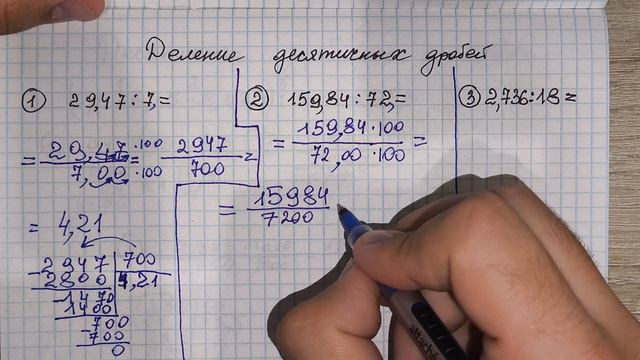 Деление десятичных дробей
① 29,47:7,=
= 29,47 ·100 / 7,00 ·100 = 2947 / 700 =
= 4,21
2947 | 700
2800 | 4,21
1470
1400
700
700
0
② 159,84:72,=
= 159,84·100 / 72,00 ·100 =
= 15984 / 7200
③ 2,736:18=
attaché